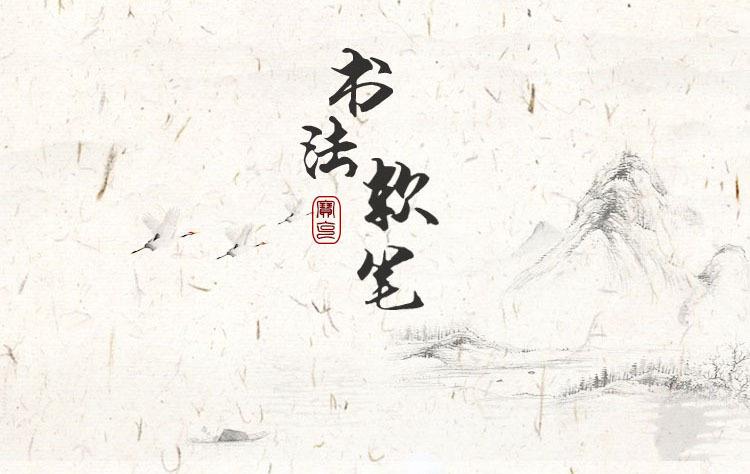 书法
软笔